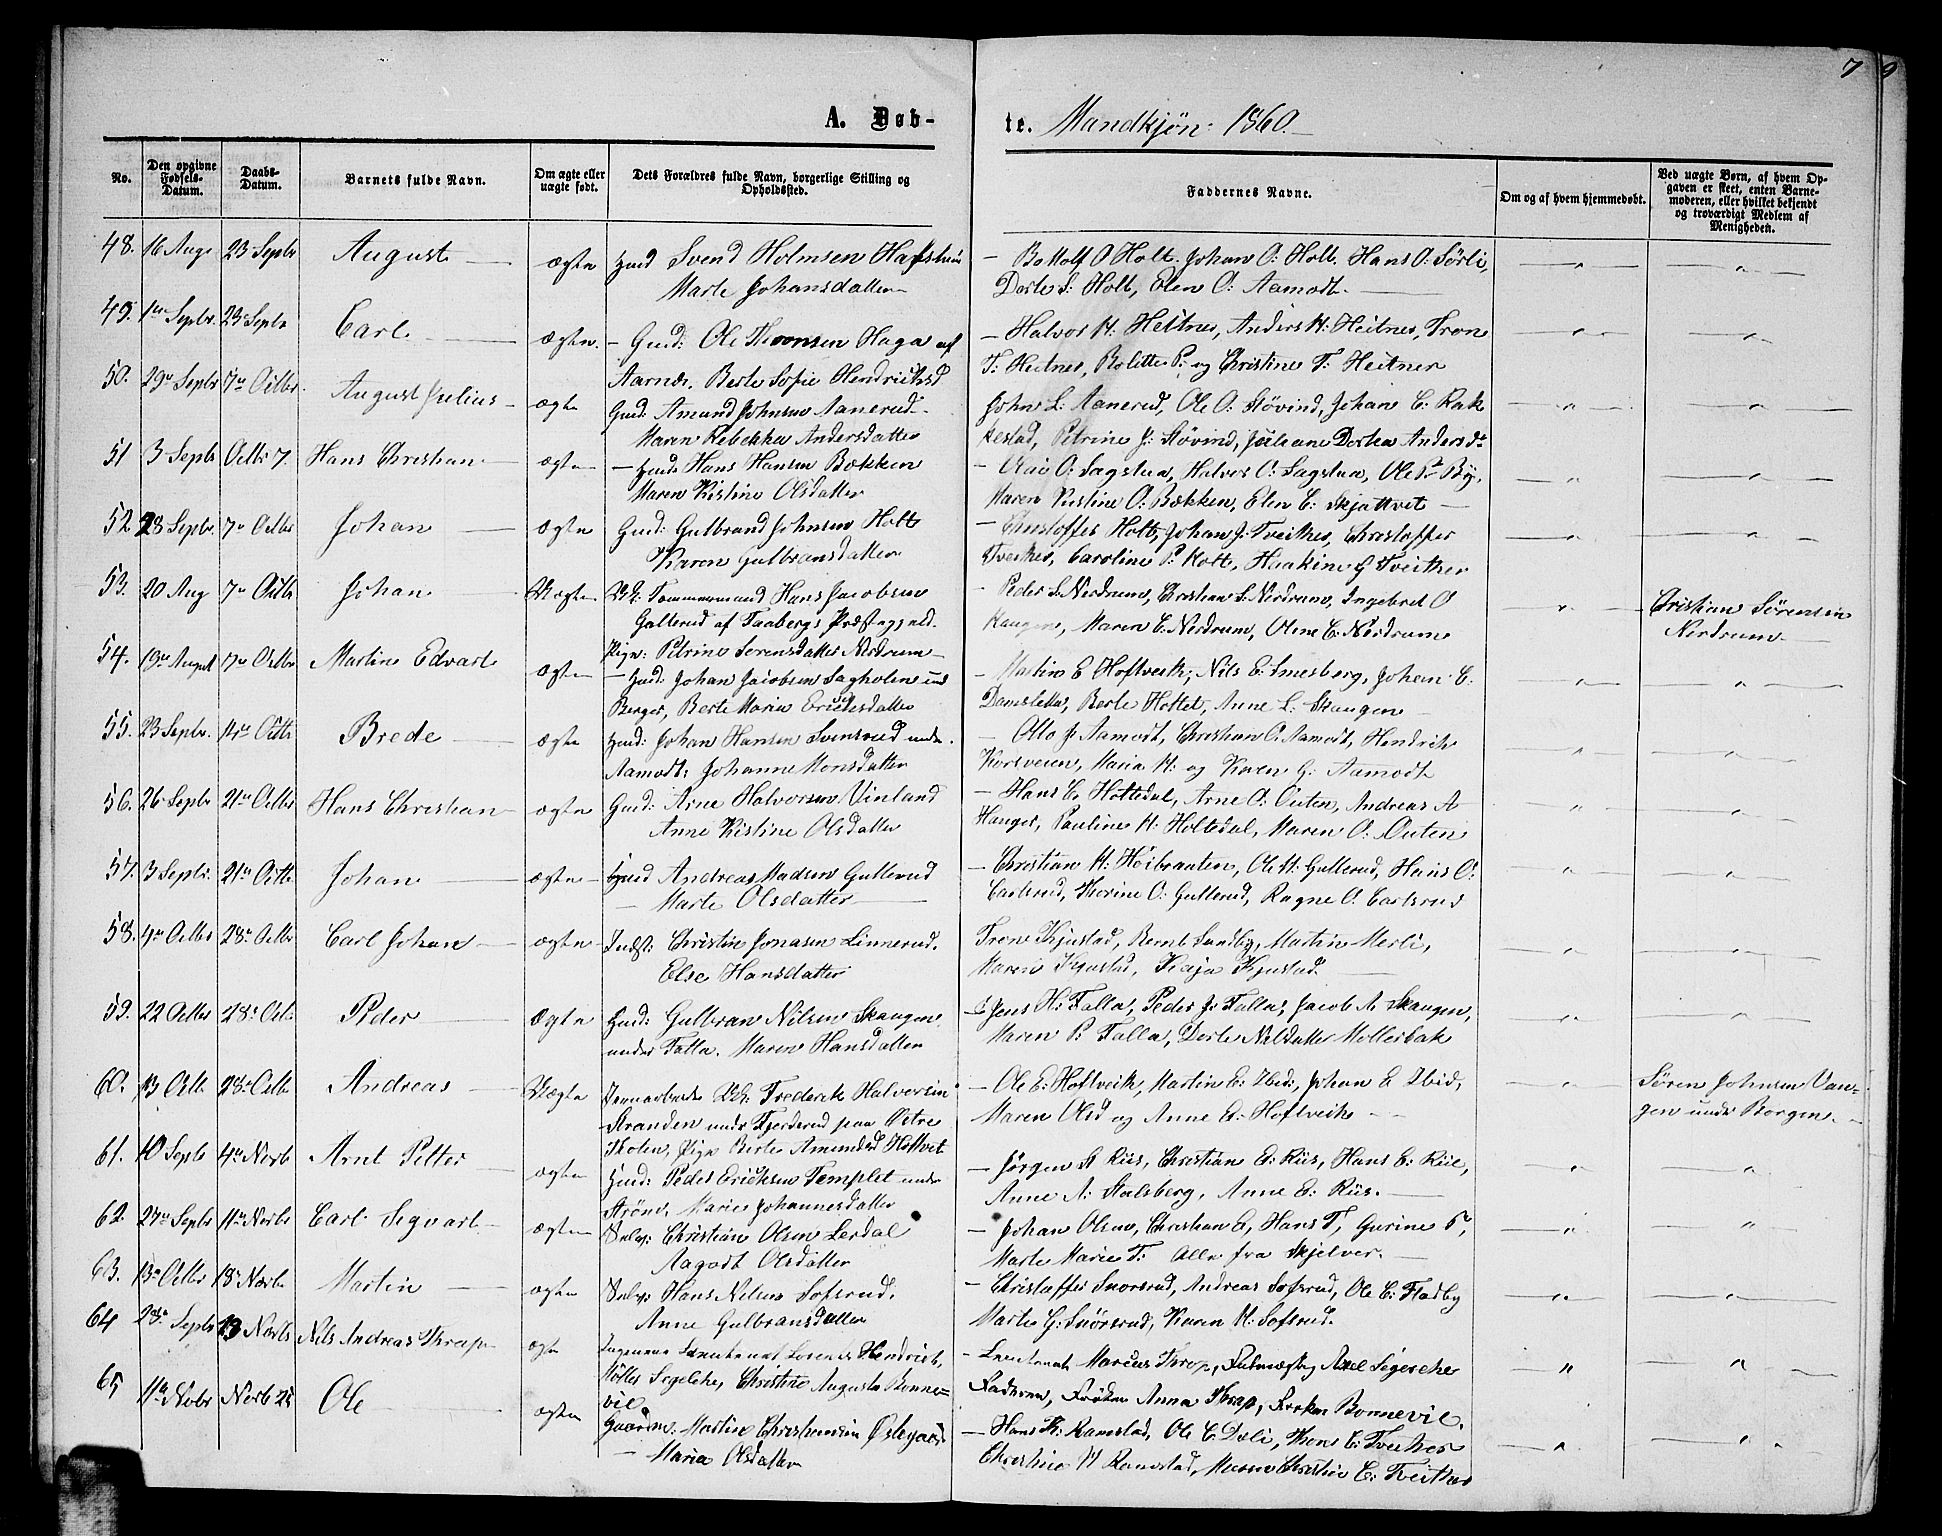 7 9
A. Døb-
te. Mandkjøn: 1860.
No.
Den opgivne Fødsels-Datum.
Daabs-Datum.
Barnets fulde Navn.
Om ægte eller uægte født.
Dets Forældres fulde Navn, borgerlige Stilling og Opholdssted.
Faddernes Navne.
Om og af hvem hjemmedøbt.
Ved uægte Børn, af hvem Opgaven er skeet, enten Barnemoderen, eller hvilket bekjendt og troværdigt Medlem af Menigheden.
48. 16 Aug 23 Septb August ægte Huusd Svend Holmsen
Marte Johansdatter
O Holt. Johan O: Holt. Hans O: Sørli,
Dorte S: Holt, Elen O: Aamodt.
49. 1 Septb. 23 Septb Carl ægte. Gaud: Ole Thronsen Haga af
Aarnæs. Berte Sofie Hendriksd
Halvor H: Heitnes, Anders H: Heitnes, Tron
T: Heitnes, P: og Christine T: Heitnes
50. 29 Septb 7 Octbr. August Julius ægte Gaud: Amund Johnsen Aanerud
Maren Rebekka Andersdatter
John L: Aanerud, Ole O: Støvind, Johan C: Rak
kestad, Petrine J: Støvind, Juliane Dorthea Andersd
51 3 Septb Octbr 7. Hans Christian ægte Huusd: Hans Hansen Bækken
Maren Kistine Olsdatter
O: Sagstua, Halvor O: Sagstua, Ole P: By,
Maren Kistine O: Bækken, Elen C: Skjattvet
52 28 Septb. 7 Octbr Johan ægte Gaud: Gulbrand Johnsen Holt
Karen Gulbransdatter
Christoffer Holt, Johan J: Tveither, Christoffer
Tveither, Caroline P: Holt, Haakine G Tveither
53. 20 Aug 7 Octbr Johan Uægte Tømmermand Hans Jacobsen
Gallerud af Faabergs Præstegjeld.
Pige: Petrine Sørensdatter Nerdrum
Peder S: Nerdrum, Christian S: Nerdrum, Ingebret O
Haugen, Maren C: Nerdrum, Oline C: Nerdrum
Cristian Sørensen
Nerdrum
54. 13 August 7 Octbr Martin Edvart ægte Huusd: Johan Jacobsen Sagholen und
Berger, Berte Marie Eriksdatter
Martin E Hoftveith, Nils E: Smesberg, Johan E:
Damsletta, Berte Anne L: Skaugen
55. 23 Septb. 14 Octbr Brede ægte Huusd: Johan Hansen Svensrud under
Aamodt, Johanne Monsdatter
Otto J: Aamodt, Christian O: Aamodt, Hendrik
Korsveien, Maria H: og Karen G: Aamodt
56. 26 Septb 21 Octbr Hans Christian ægte Gaud: Arne Halvorsen Vinland
Anne Kistine Olsdatter
Hans C: Holtedal, Arne O: Outen, Andreas A
Hanger, Pauline H: Holtedal, Maren O: Outen
57. 3 Septb. 21 Octbr Johan ægte Huusd Andreas Madsen Gullerud
Marte Olsdatter
Christian H: Høibraaten, Ole H: Gullerud, Hans O:
Carlsrud, Thorine O: Gullerud, Ragne O. Carlsrud
58. 4 Octbr 28 Octbr Carl Johan ægte Indst: Christin Jonasen Linnerud.
Else Hansdatter
Trone Kjustad, Bernt Sundby, Martin Merli,
Maren Kjustad, Kaja Kjustad.
59. 22 Octbr 28 Oct. Peder Ægte Huusd: Gulbran Nilsen Skaugen
under Falla. Maren Hansdatter
Jens H: Falla, Peder J: Falla, Jacob A: Skaugen,
Maren P: Falla, Dorte Nilsdatter Møllerbak
60. 13 Octb 28 Octbr Andreas Uægte Frederik Halvorsen
Stranden under Fjerderud paa Østre
Toten, Pige Berte Amundsd Hoftvet
Ole E: Hoftveith, Martin E: Ibid:, Johan E Ibid,
Maren Olsd og Anne E: Hoftveith
Søren Johnsen Vangen under Borgen.
61. 10 Septb 4 Novb Arnt Petter ægte Huusd: Peder Eriksen Templet under
Strøm, Marie Johannesdatter
Jørgen A Riis, Christian E: Riis, Hans E: Riis,
Anne A: Stalsberg, Anne E: Riis.
62. 27 Septb 11 Novbr Carl Sigvart ægte Selv: Christian Olsen Lerdal
Aagodt Olsdatter
Johan Olsen, Christian E, Hans T, Gurine P,
Marte Marie T: Alle fra Skjelver.
63. 13 Octbr 18 Novb. Martin ægte Selv: Hans Nilsen Sofsrud.
Anne Gulbransdatter
Christoffer Snorsrud, Andreas Sofsrud, Ole C: Fladby
Marte G: Snorsrud, Karen H: Sofsrud.
64 28 Septb 13 Novbr Nils Andreas Thrap ægte Ingeniør Lieutenant Lorents Hendrich
Møller Segelche, Christine Augusta Bonnevie
Lieutenant Marcus Thrap, Axel Segelche
Faderen, Frøken Anna Thrap, Frøken Bonnevie.
65 11 Nobr Novb 25 Ole ægte Gaardm: Martin Christiansen Østegaard
Maria Olsdatter
Hans H: Ramstad, Ole C: Dæli, Thons C: Tveither
Christine H Ramstad, Maren Christine C: Tveither